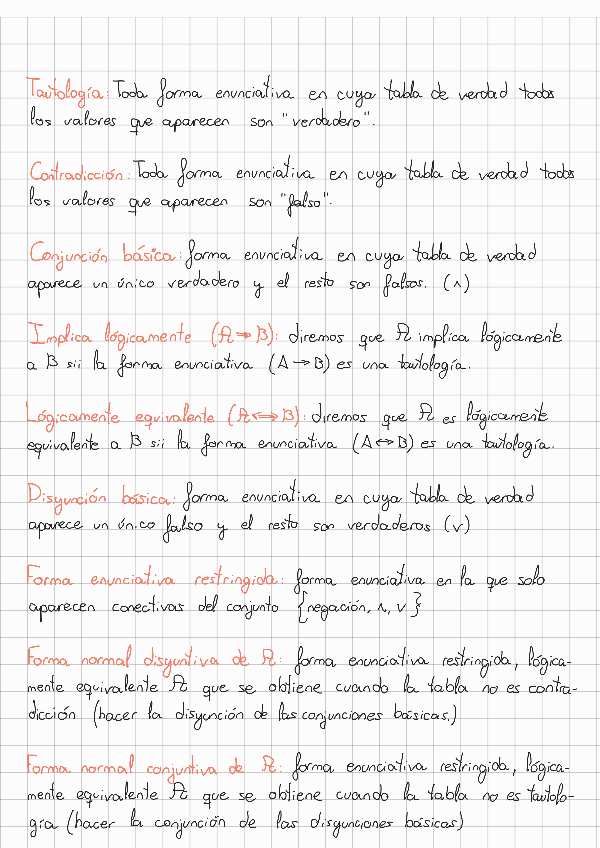 Tautología: Toda forma enunciativa en cuya tabla de verdad todos
los valores que aparecen son "verdadero".
Contradicción: Toda forma enunciativa en cuya tabla de verdad todos
los valores que aparecen son "falso".
Conjunción básica: forma enunciativa en cuya tabla de verdad
aparece un único verdadero y el resto son falsos. (∧)
Implica lógicamente (A ⇒ B): diremos que A implica lógicamente
a B sii la forma enunciativa (A → B) es una tautología.
Lógicamente equivalente (A ⟺ B): diremos que A es lógicamente
equivalente a B sii la forma enunciativa (A ↔ B) es una tautología.
Disyunción básica: forma enunciativa en cuya tabla de verdad
aparece un único falso y el resto son verdaderos (∨)
Forma enunciativa restringida: forma enunciativa en la que solo
aparecen conectivas del conjunto {negación, ∧, ∨}
Forma normal disyuntiva de A: forma enunciativa restringida, lógica-
mente equivalente A que se obtiene cuando la tabla no es contra-
dicción (hacer la disyunción de las conjunciones básicas.)
Forma normal conjuntiva de A: forma enunciativa restringida, lógica-
mente equivalente A que se obtiene cuando la tabla no es tautolo-
gía (hacer la conjunción de las disyunciones básicas)